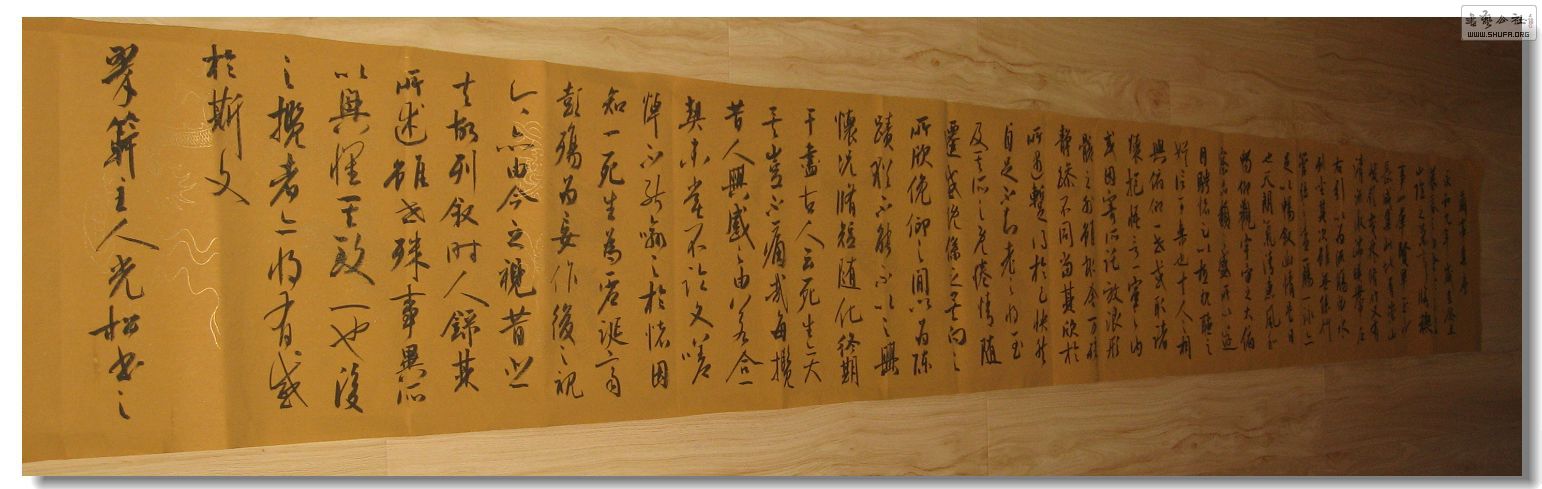 蘭亭集序
永和九年歲在癸丑
暮春之
山陰之蘭亭脩禊
事也羣賢畢至少
長咸集此地有崇山
峻嶺茂林脩竹又有
清流激湍映帶左
右引以為流觴曲水
列坐其次雖無絲竹
管絃之盛一觴一詠亦
足以暢敘幽情是日
也天朗氣清惠風和
暢仰觀宇宙之大俯
察品類之盛所以遊
目騁懷足以極視聽之
娛信可樂也夫人之相
與俯仰一世或取諸
懷抱悟言一室之內
或因寄所託放浪形
骸之外雖趣舍萬殊
靜躁不同當其欣於
所遇暫得於己快然
自足不知老之將至
及其所之既倦情隨
遷感慨係之矣向之
所欣俛仰之間以為陳
蹟猶不能不以之興
懷況脩短隨化終期
於盡古人云死生亦大
矣豈不痛哉每攬
昔人興感之由若合一
契未嘗不臨文嗟
悼不能喻之於懷固
知一死生為虛誕齊
彭殤為妄作後之視
今亦由今之視昔悲
夫故列敘時人錄其
所述雖世殊事異所
以興懷其致一也後
之攬者亦將有感
於斯文
翠簳主人光松書之
書藝公社
WWW.SHUFA.ORG